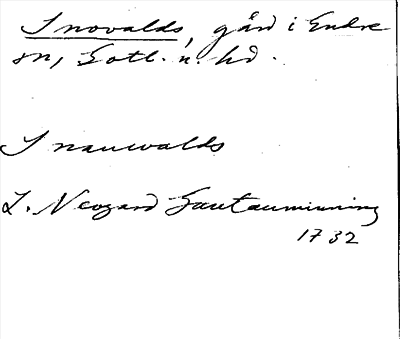 Snovalds, gård i Endre
sn, Gotl. n. hd.
Snauwalds
L. Neogard Gautauminning
1732